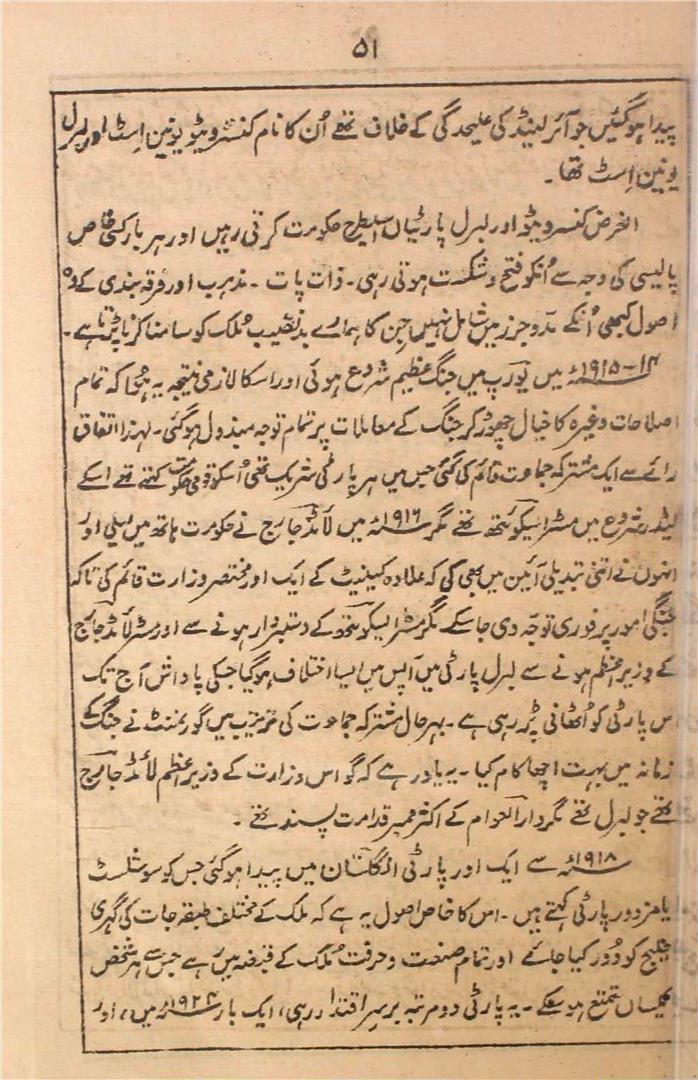 ۵۱
پیدا ہوگئیں جو آئرلینڈ کی علیحدگی کے خلاف تھے اُن کا نام کنسرویٹو یونین اِسٹ اور لبرل
یونین اِسٹ تھا۔
الغرض کنسرویٹو اور لبرل پارٹیاں اسیطرح حکومت کرتی رہیں اور ہر بار کسی خاص
پالیسی کی وجہ سے اُنکو فتح و شکست ہوتی رہی۔ ذات پات ۔ مذہب اور فرقہ بندی کے وہ
اصول کبھی اُنکے مدّوجزر میں شامل نہیں جن کا ہمارے بدنصیب مُلک کو سامنا کرنا پڑتا ہے۔
۱۴-۱۹۱۵ء میں یورپ میں جنگ عظیم شروع ہوئی اور اسکا لازمی نتیجہ یہ ہُوا کہ تمام
اصلاحات وغیرہ کا خیال چھوڑ کر جنگ کے معاملات پر تمام توجہ مبذول ہوگئی۔ لہذا اتفاق
رائے سے ایک مشترکہ جماعت قائم کی گئی جس میں ہر پارٹی شریک تھی اُسکو قومی حکومت کہتے تھے اسکے
لیڈر شروع میں مسٹر ایسکوئتھ تھے مگر ۱۹۱۶ء میں لائڈ جارج نے حکومت ہاتھ میں لی اور
انہوں نے اتنی تبدیلی آئین میں بھی کی کہ علاوہ کیبنیٹ کے ایک اور مختصر وزارت قائم کی تاکہ
جنگی امور پر فوری توجہ دی جاسکے مگر مسٹر ایسکوئتھ کے دستبردار ہونے سے اور مسٹر لائڈ جارج
کے وزیراعظم ہونے سے لبرل پارٹی میں آپس میں ایسا اختلاف ہوگیا جسکی پاداش آج تک
اس پارٹی کو اُٹھانی پڑ رہی ہے ۔ بہرحال مشترکہ جماعت کی ترتیب میں گورنمنٹ نے جنگ کے
زمانہ میں بہت اچھا کام کیا ۔ یہ یاد رہے کہ گو اس وزارت کے وزیراعظم لائڈ جارج
تھے جو لبرل تھے مگر دارالعوام کے اکثر ممبر قدامت پسند تھے ۔
۱۹۱۸ء سے ایک اور پارٹی انگلستان میں پیدا ہوگئی جس کو سوشلسٹ
یا مزدور پارٹی کہتے ہیں ۔ اس کا خاص اصول یہ ہے کہ ملک کے مختلف طبقہ جات کی گہری
خلیج کو دُور کیا جائے اور تمام صنعت و حرفت مُلک کے قبضہ میں رہے جس سے ہر شخص
یکساں متمتع ہوسکے ۔ یہ پارٹی دو مرتبہ برسرِ اقتدار رہی، ایک بار ۱۹۲۴ء میں، اور